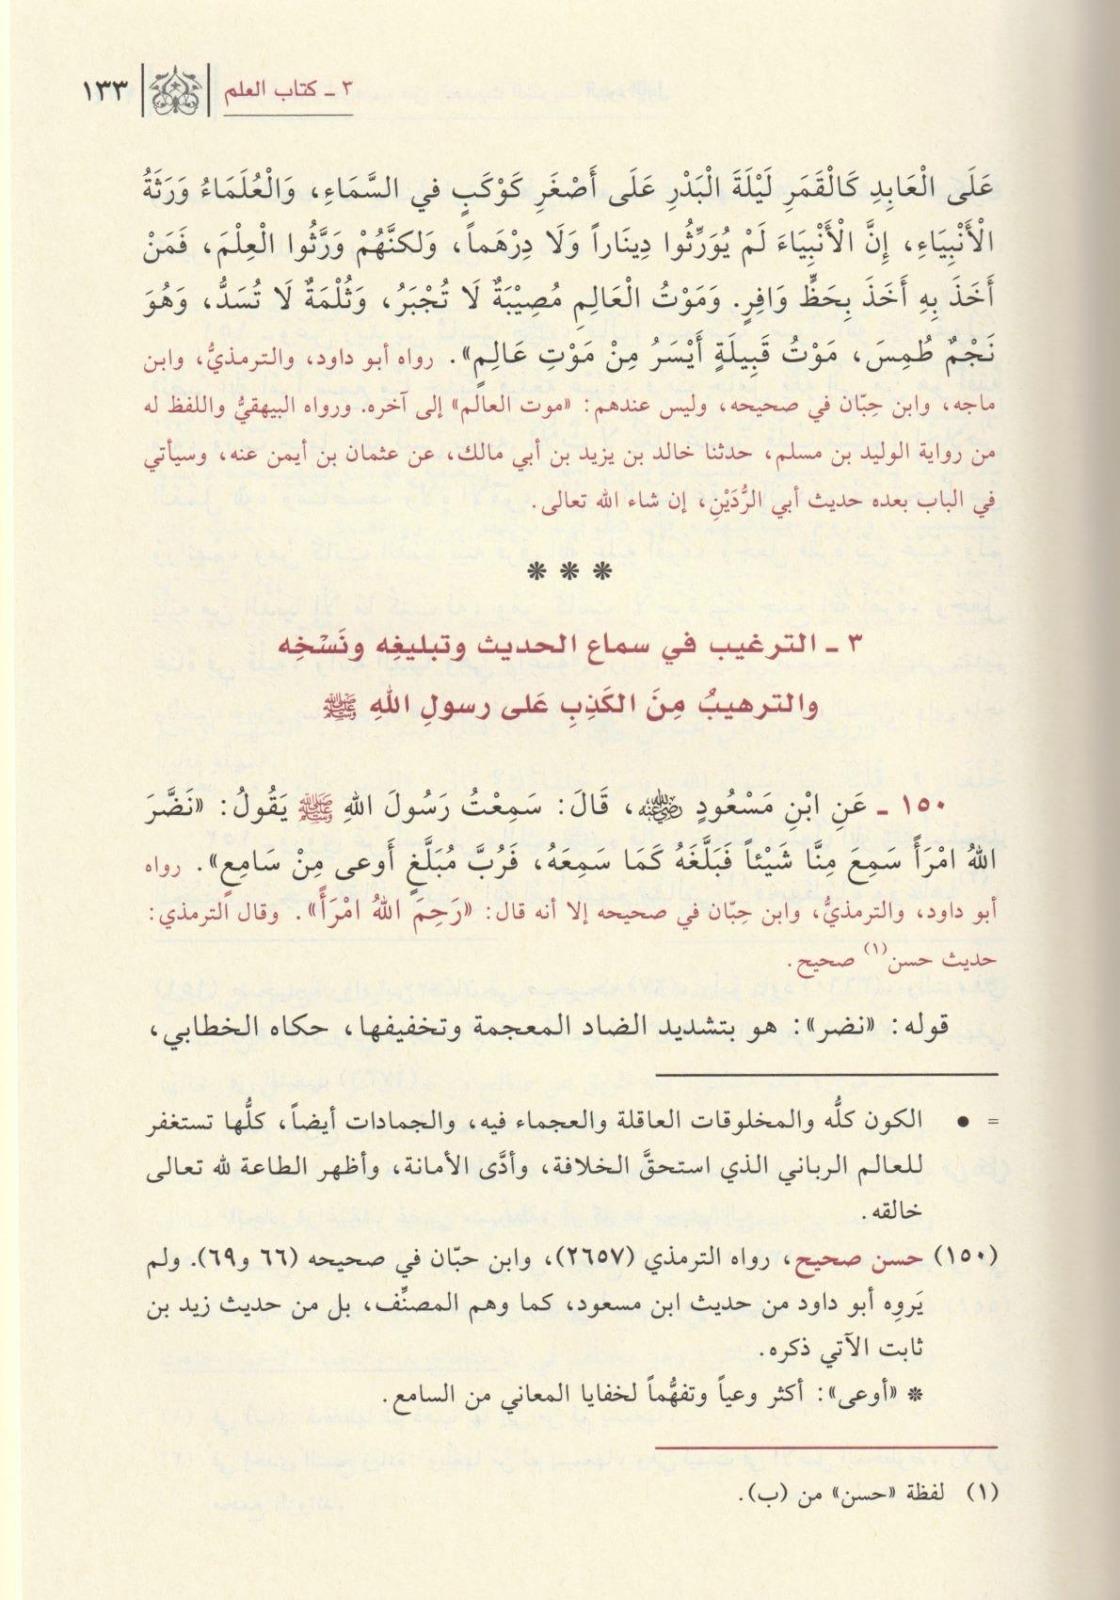 ٣ ـ كتاب العلم ١٣٣
عَلَى الْعَابِدِ كَالْقَمَرِ لَيْلَةَ الْبَدْرِ عَلَى أَصْغَرِ كَوْكَبٍ في السَّمَاءِ، وَالْعُلَمَاءُ وَرَثَةُ
الْأَنْبِيَاءِ، إِنَّ الْأَنْبِيَاءَ لَمْ يُوَرِّثُوا دِينَاراً وَلَا دِرْهَماً، وَلكنَّهُمْ وَرَّثُوا الْعِلْمَ، فَمَنْ
أَخَذَ بِهِ أَخَذَ بِحَظٍّ وَافِرٍ. وَمَوْتُ الْعَالِمِ مُصِيْبَةٌ لَا تُجْبَرُ، وَثُلْمَةٌ لَا تُسَدُّ، وَهُوَ
نَجْمٌ طُمِسَ، مَوْتُ قَبِيلَةٍ أَيْسَرُ مِنْ مَوْتِ عَالِمٍ». رواه أبو داود، والترمذيُّ، وابن
ماجه، وابن حِبّان في صحيحه، وليس عندهم: «موت العالم» إلى آخره. ورواه البيهقيُّ واللفظ له
من رواية الوليد بن مسلم، حدثنا خالد بن يزيد بن أبي مالك، عن عثمان بن أيمن عنه، وسيأتي
في الباب بعده حديث أبي الرُّدَيْنِ، إن شاء الله تعالى.
* * *
٣ ـ الترغيب في سماع الحديث وتبليغِه ونَسْخِه
والترهيبُ مِنَ الكَذِبِ عَلى رسولِ اللهِ ﷺ
١٥٠ ـ عَنِ ابْنِ مَسْعُودٍ رضي الله عنه، قَالَ: سَمِعْتُ رَسُولَ اللهِ ﷺ يَقُولُ: «نَضَّرَ
اللهُ امْرَأً سَمِعَ مِنَّا شَيْئاً فَبَلَّغَهُ كَمَا سَمِعَهُ، فَرُبَّ مُبَلَّغٍ أَوعى مِنْ سَامِعٍ». رواه
أبو داود، والترمذيُّ، وابن حِبّان في صحيحه إلا أنه قال: «رَحِمَ اللهُ امْرَأً». وقال الترمذي:
حديث حسن(١) صحيح.
قوله: «نضر»: هو بتشديد الضاد المعجمة وتخفيفها، حكاه الخطابي،
= ● الكون كلُّه والمخلوقات العاقلة والعجماء فيه، والجمادات أيضاً، كلُّها تستغفر
للعالم الرباني الذي استحقَّ الخلافة، وأدَّى الأمانة، وأظهر الطاعة لله تعالى
خالقه.
(١٥٠) حسن صحيح، رواه الترمذي (٢٦٥٧)، وابن حبّان في صحيحه (٦٦ و٦٩). ولم
يَروِه أبو داود من حديث ابن مسعود، كما وهم المصنِّف، بل من حديث زيد بن
ثابت الآتي ذكره.
* «أوعى»: أكثر وعياً وتفهُّماً لخفايا المعاني من السامع.
(١) لفظة «حسن» من (ب).